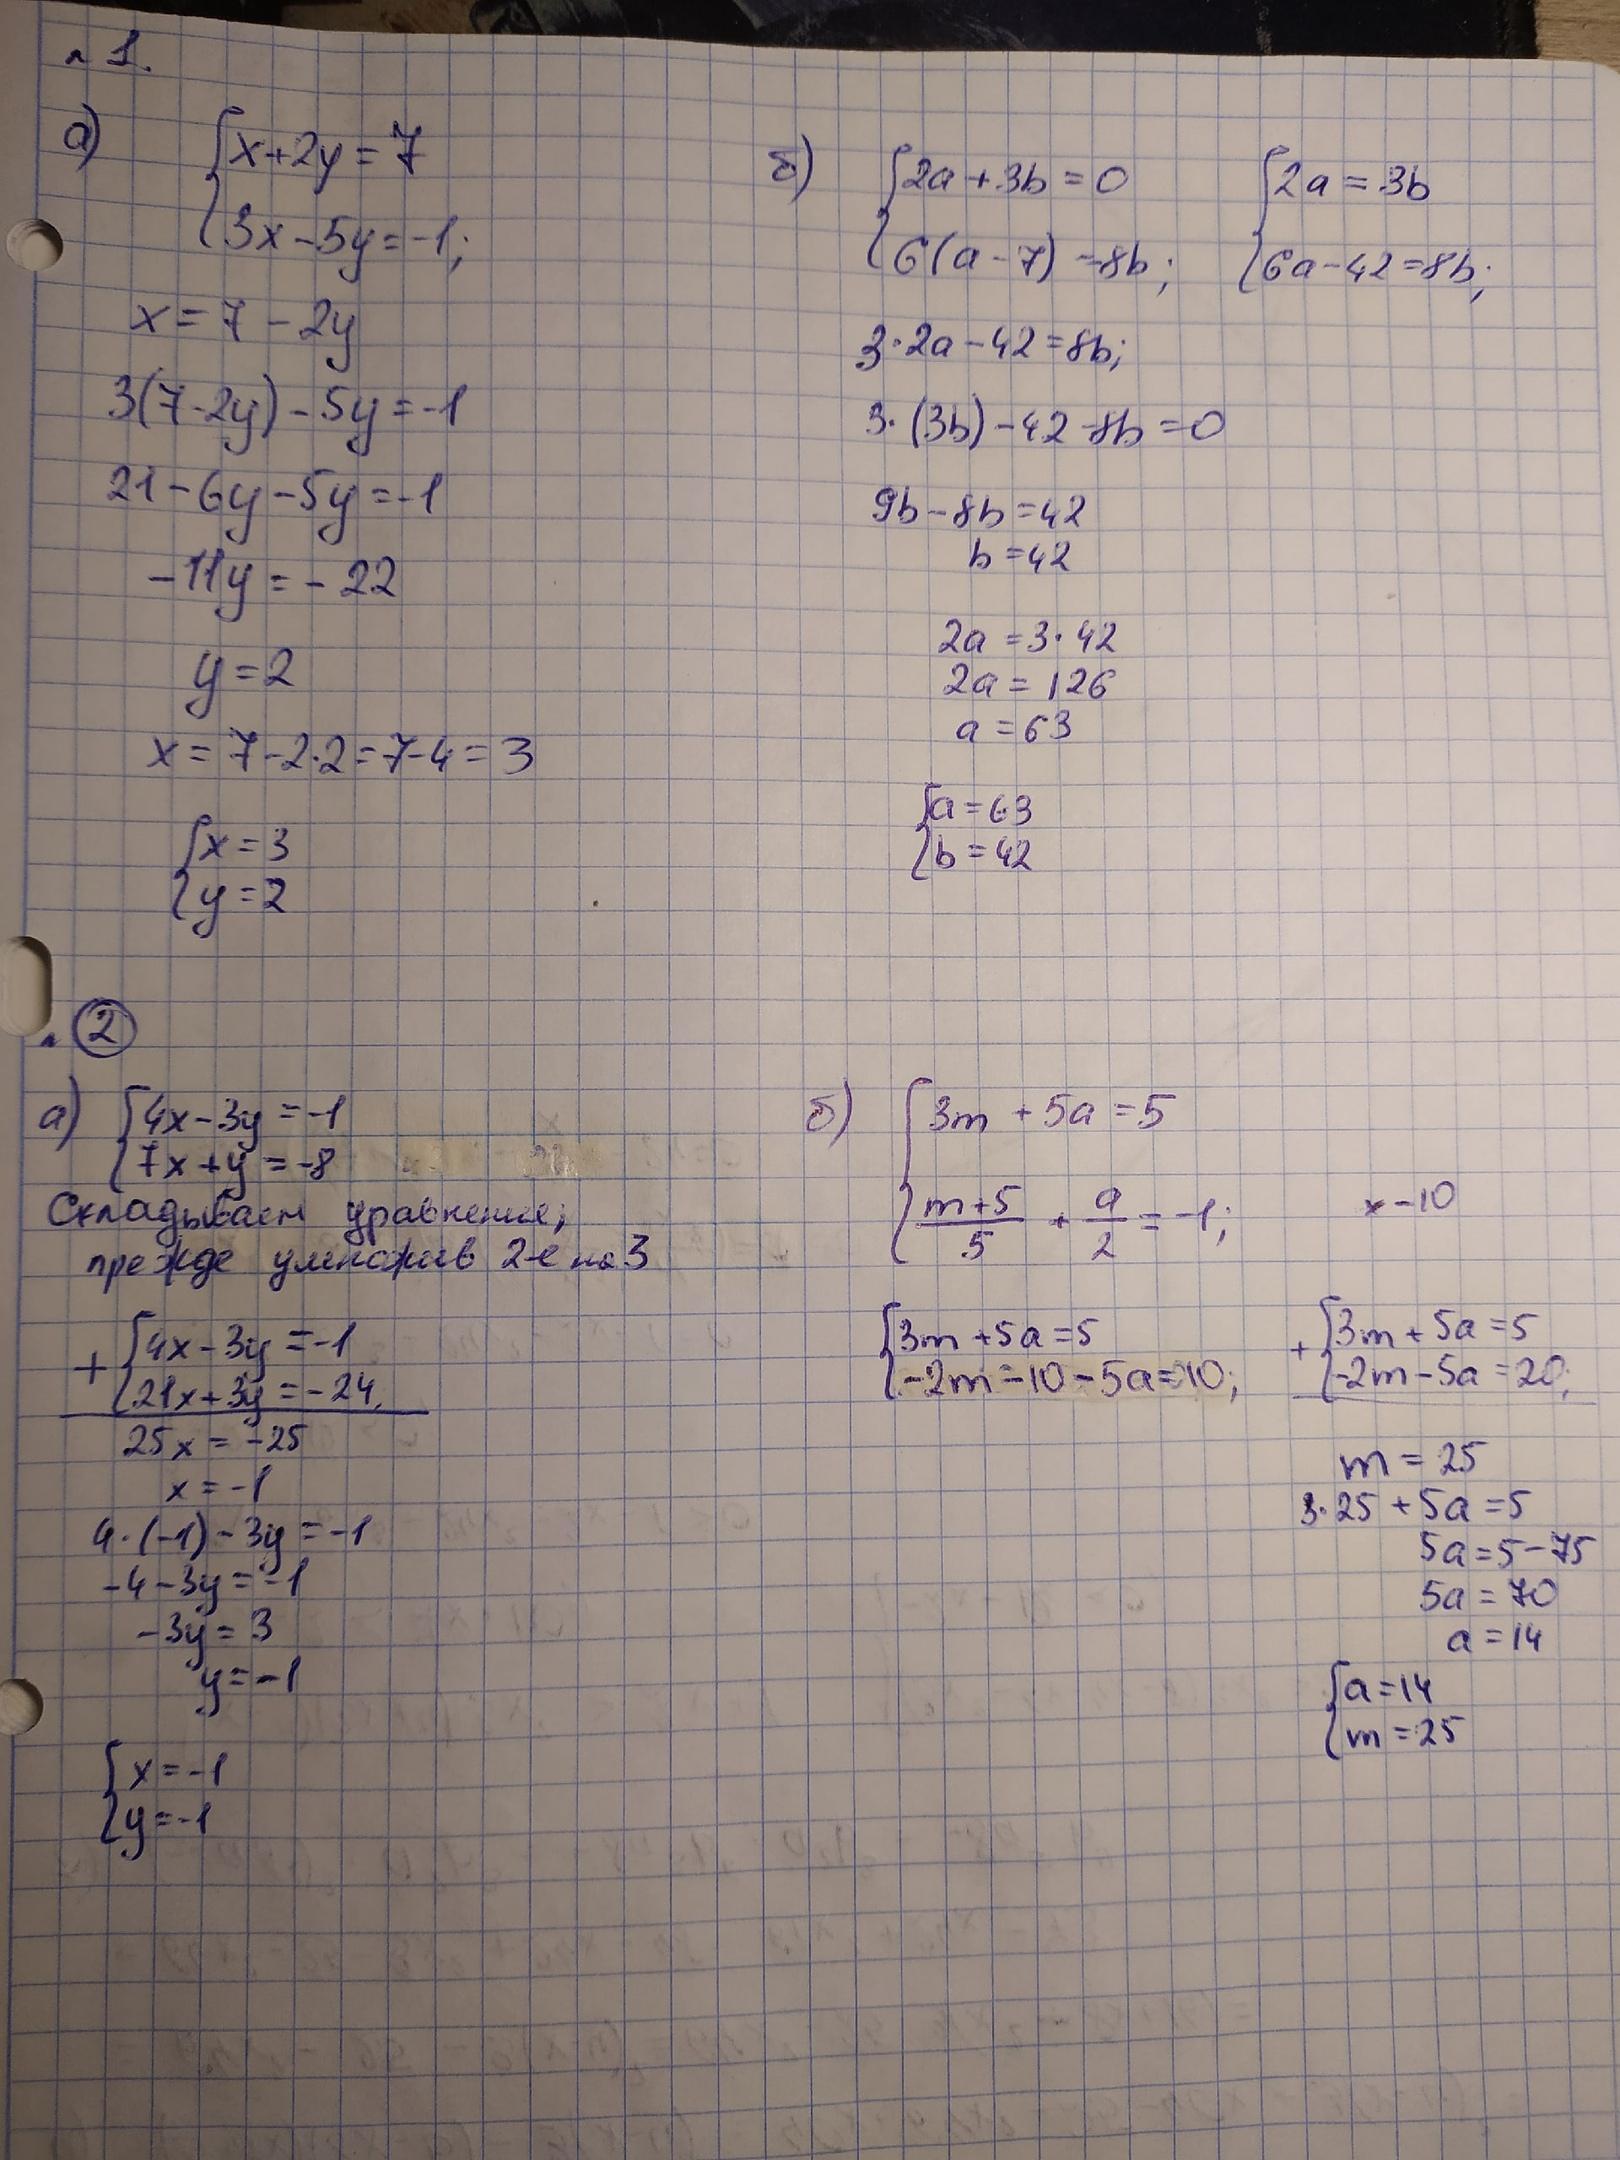 № 1.
а) { x+2y = 7
{ 3x-5y=-1;
x = 7 - 2y
3(7-2y)-5y=-1
21-6y-5y=-1
-11y = -22
y = 2
x = 7-2·2=7-4=3
{ x=3
{ y=2
б) { 2a+3b=0
{ 6(a-7)=8b;
{ 2a=3b
{ 6a-42=8b;
3·2a-42=8b;
3·(3b)-42-8b=0
9b-8b=42
b=42
2a=3·42
2a=126
a=63
{ a=63
{ b=42
№ 2
а) { 4x-3y=-1
{ 7x+y=-8
Складываем уравнение,
прежде умножив 2-е на 3
+ { 4x-3y=-1
{ 21x+3y=-24,
25x=-25
x=-1
4·(-1)-3y=-1
-4-3y=-1
-3y=3
y=-1
{ x=-1
{ y=-1
б) { 3m+5a=5
{ (m+5)/5 + a/2 = -1; x-10
{ 3m+5a=5
{ -2m-10-5a=10;
+ { 3m+5a=5
{ -2m-5a=20;
m=25
3·25+5a=5
5a=5-75
5a=70
a=14
{ a=14
{ m=25